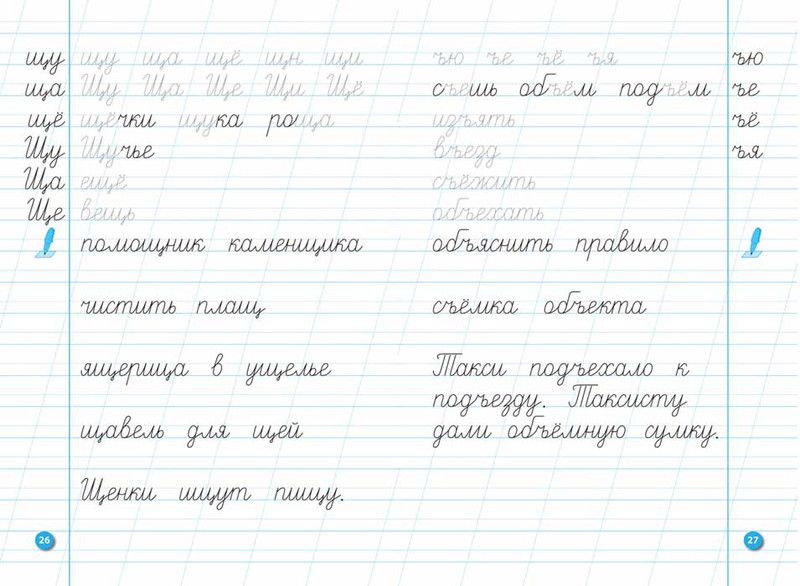 щу щу ща щё щн щи
ща Щу Ща Ще Щи Щё
щё щёчки щука роща
Щу Щучье
Ща ещё
Ще вещь
помощник каменщика
чистить плащ
ящерица в ущелье
щавель для щей
Щенки ищут пищу.
26
ъю ъе ъё ъя ъю
съешь объём подъём ъе
изъять ъё
въезд ъя
съёжить
объехать
объяснить правило
съёмка объекта
Такси подъехало к
подъезду. Таксисту
дали объёмную сумку.
27